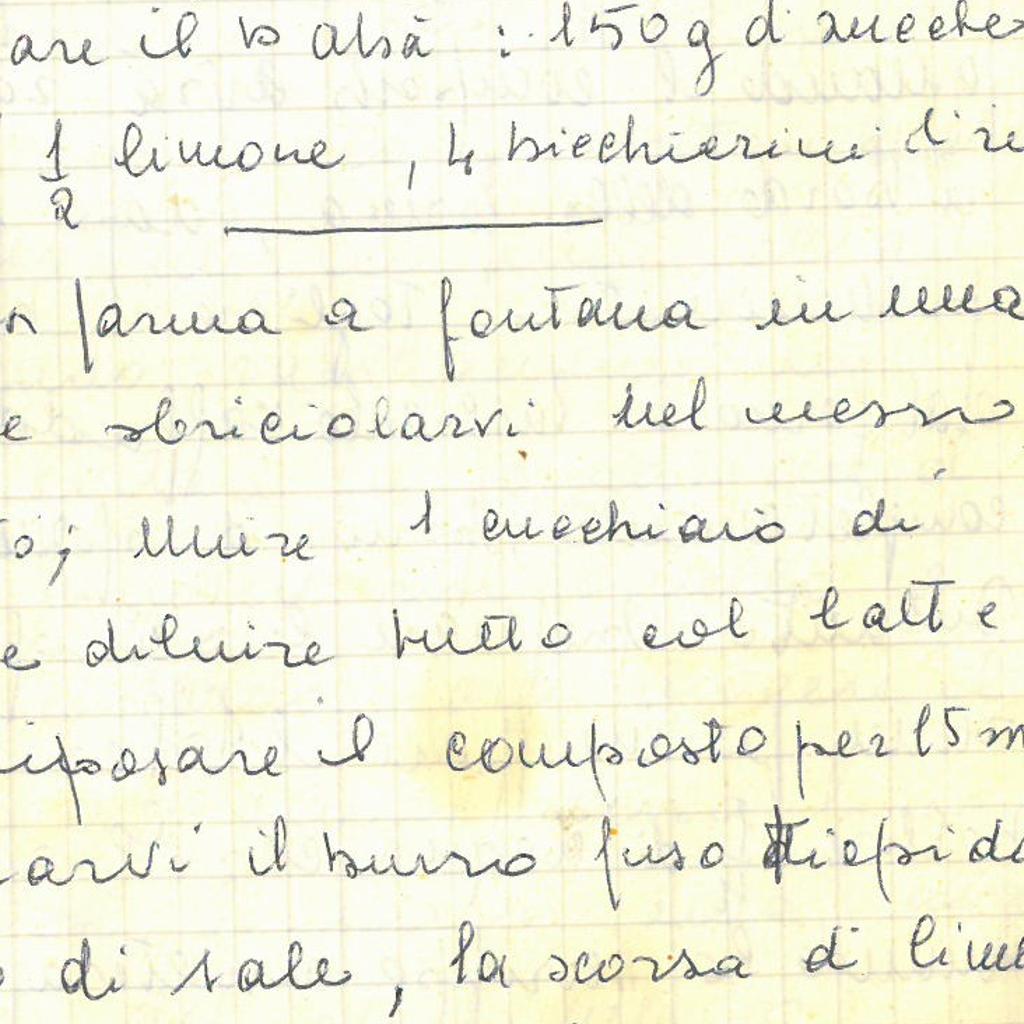 are il babà : 150 g di zucche
1/2 limone , 4 bicchierini di
farina a fontana in una
e sbriciolarvi nel mezzo
to; Unire 1 cucchiaio di
e diluire tutto col latte
riposare il composto per 15 m
arvi il burro fuso tiepido
di sale , la scorza di limo